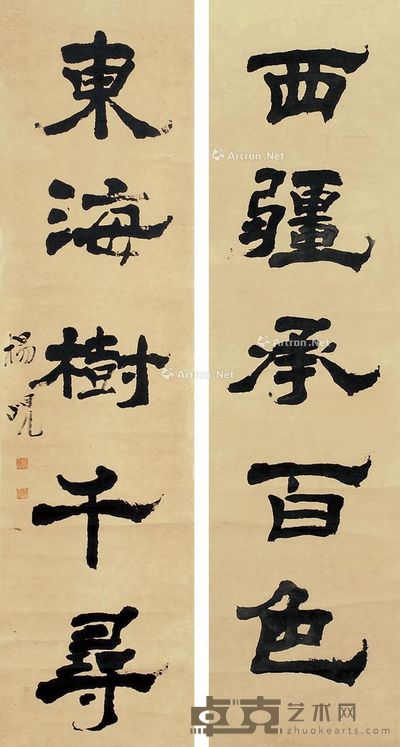 西疆承百色
東海樹千尋
楊峴
Artron.Net
Artron.Net
Artron.Net
Artron.Net
卓克艺术网
zhuokearts.com